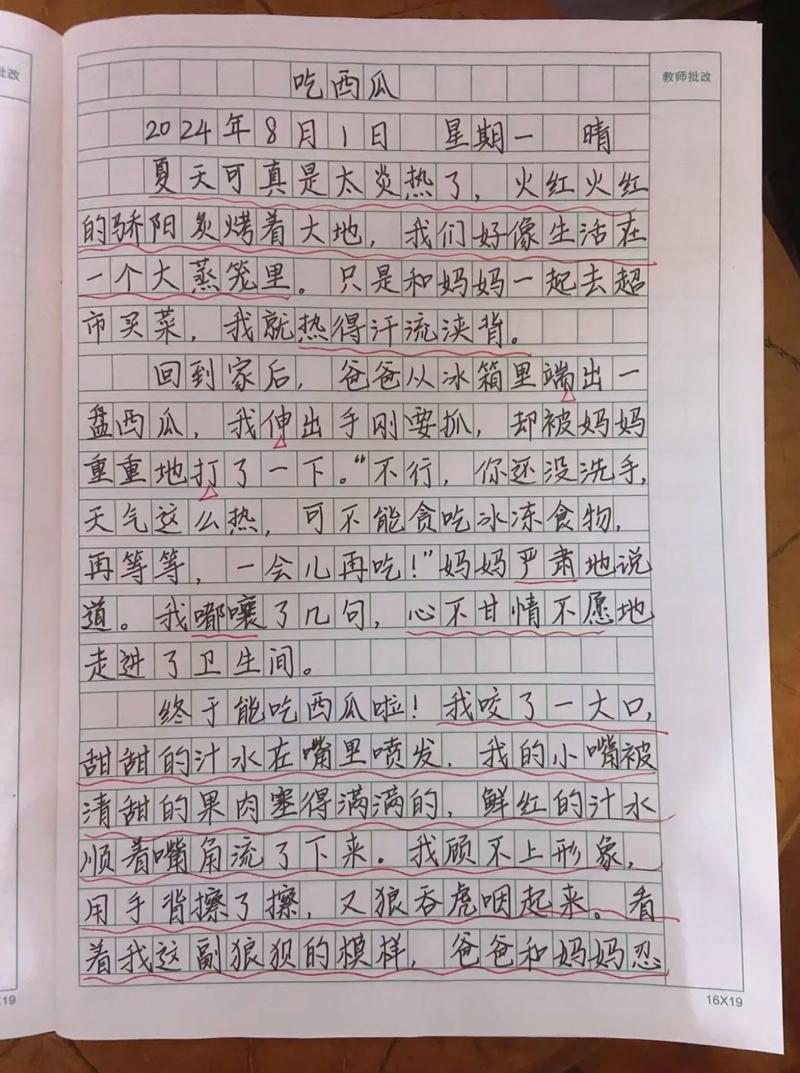 批改
教师批改
吃西瓜
2024年8月1日 星期一 晴
夏天可真是太炎热了，火红火红
的骄阳炙烤着大地，我们好像生活在
一个大蒸笼里。只是和妈妈一起去超
市买菜，我就热得汗流浃背。
回到家后，爸爸从冰箱里端出一
盘西瓜，我伸出手刚要抓，却被妈妈
重重地打了一下。“不行，你还没洗手，
天气这么热，可不能贪吃冰冻食物，
再等等，一会儿再吃！”妈妈严肃地说
道。我嘟囔了几句，心不甘情不愿地
走进了卫生间。
终于能吃西瓜啦！我咬了一大口，
甜甜的汁水在嘴里喷发，我的小嘴被
清甜的果肉塞得满满的，鲜红的汁水
顺着嘴角流了下来。我顾不上形象，
用手背擦了擦，又狼吞虎咽起来。看
着我这副狼狈的模样，爸爸和妈妈忍
16X19
X19